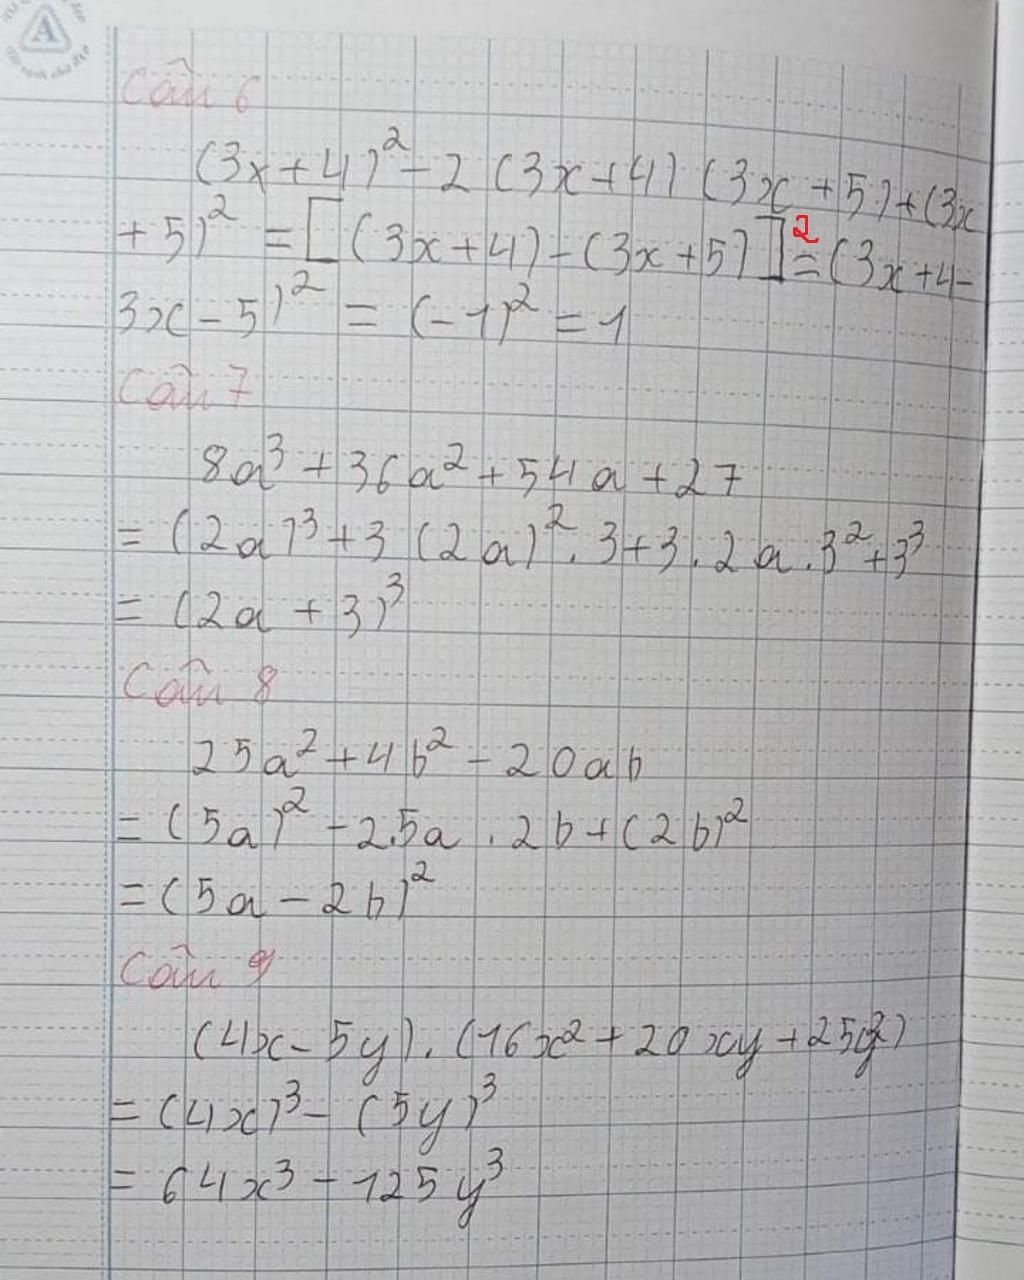 A
Câu 6
(3x+4)² - 2 (3x+4) (3x+5) + (3x
+5)² = [(3x+4) - (3x+5)]² = (3x+4-
3x-5)² = (-1)² = 1
Câu 7
8a³ + 36a² + 54a + 27
= (2a)³ + 3 (2a)² . 3 + 3 . 2a . 3² + 3³
= (2a + 3)³
Câu 8
25a² + 4b² - 20ab
= (5a)² - 2.5a . 2b + (2b)²
= (5a - 2b)²
Câu 9
(4x - 5y) . (16x² + 20xy + 25y²)
= (4x)³ - (5y)³
= 64x³ - 125y³